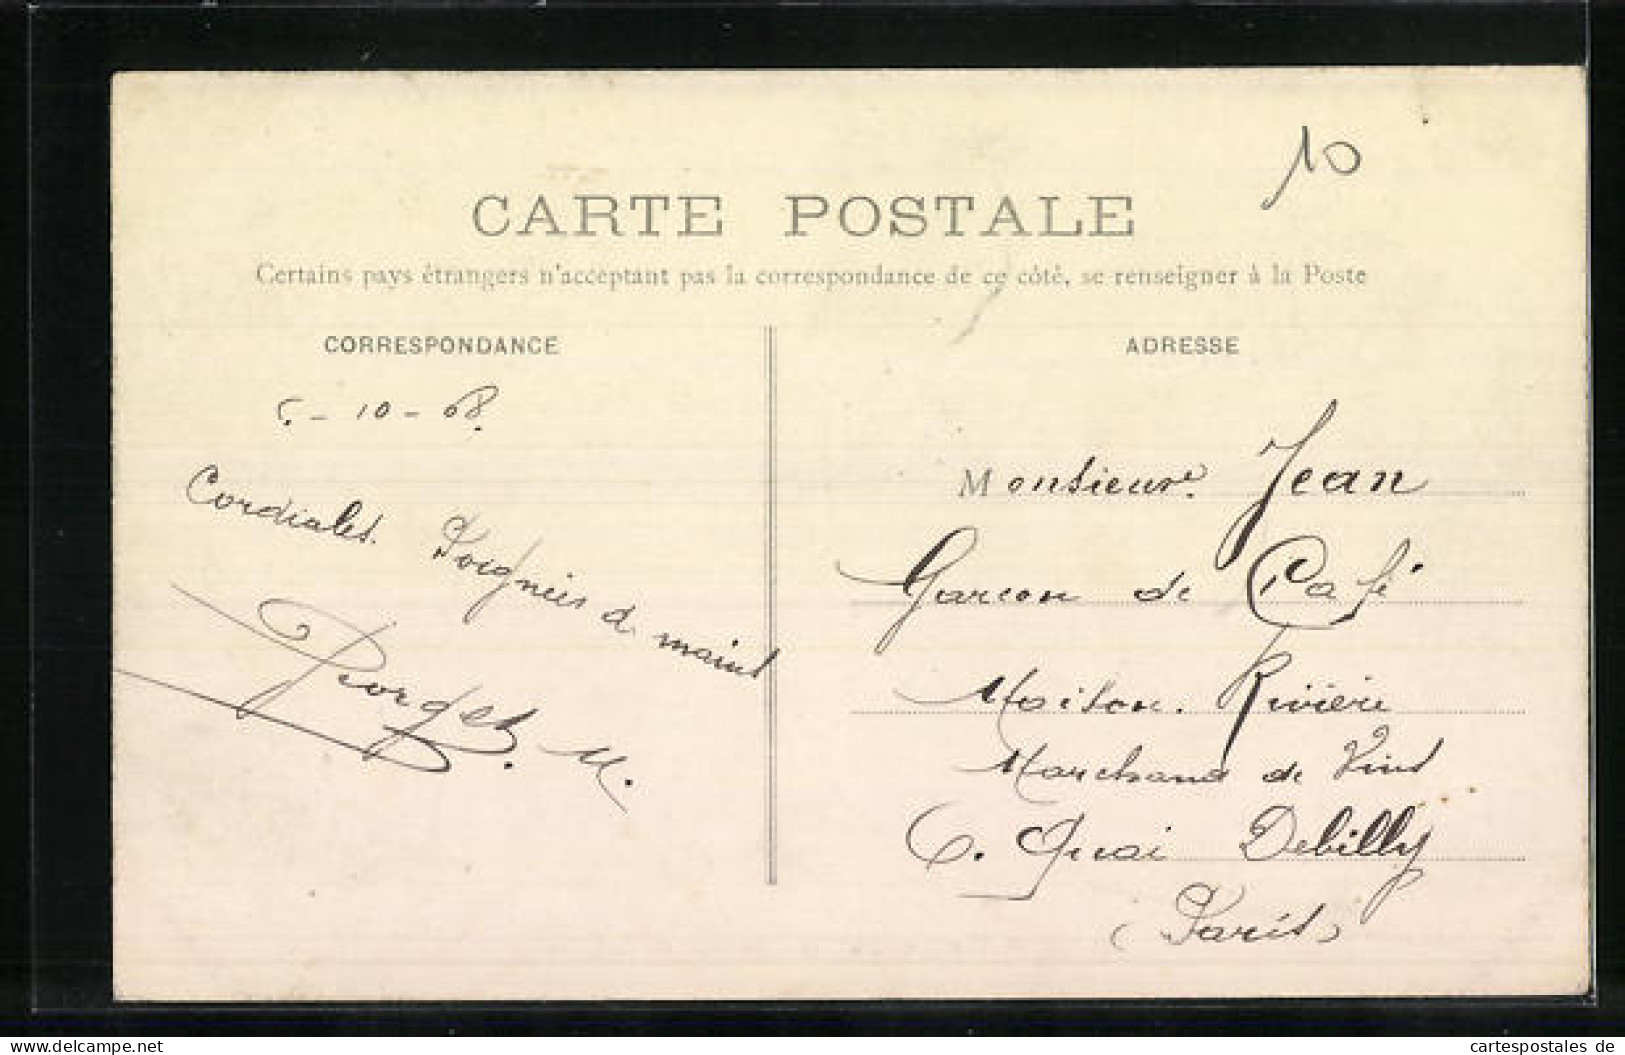 10
CARTE POSTALE
Certains pays étrangers n'acceptant pas la correspondance de ce côté, se renseigner à la Poste
CORRESPONDANCE
5 - 10 - 08.
Cordiales Poignées d mains
Georges. M.
ADRESSE
Monsieur Jean
Garcon de Café
Maison Rivière
Marchand de Vins
6. Quai Debilly
(Paris)
www.delcampe.net
cartespostales de